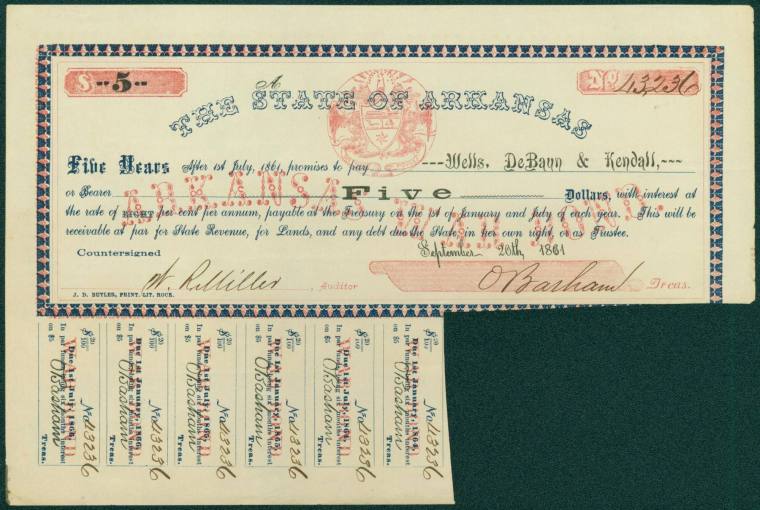 $ --5-- A No 43236
THE STATE OF ARKANSAS
Five Years After 1st July, 1861, promises to pay ---Wells, DeBaun & Kendall,---
or Bearer Five Dollars, with interest at
the rate of EIGHT per cent per annum, payable at the Treasury on the 1st of January and July of each year. This will be
receivable at par for State Revenue, for Lands, and any debt due the State, in her own right, or as Trustee.
ARKANSAS WAR BOND.
September 20th, 1861
Countersigned
W. R. Miller, Auditor O Basham Treas.
J. D. BUTLER, PRINT. LIT. ROCK.
$ 20/100 No 43236
Due 1st July, 1866,
In par Funds, being six months Interest
on $5 O Basham
Treas.
$ 20/100 No 43236
Due 1st January, 1866,
In par Funds, being six months Interest
on $5 O Basham
Treas.
$ 20/100 No 43236
Due 1st July, 1865,
In par Funds, being six months Interest
on $5 O Basham
Treas.
$ 20/100 No 43236
Due 1st January, 1865,
In par Funds, being six months Interest
on $5 O Basham
Treas.
$ 20/100 No 43236
Due 1st July, 1864,
In par Funds, being six months Interest
on $5 O Basham
Treas.
$ 20/100 No 43236
Due 1st January, 1864,
In par Funds, being six months Interest
on $5 O Basham
Treas.